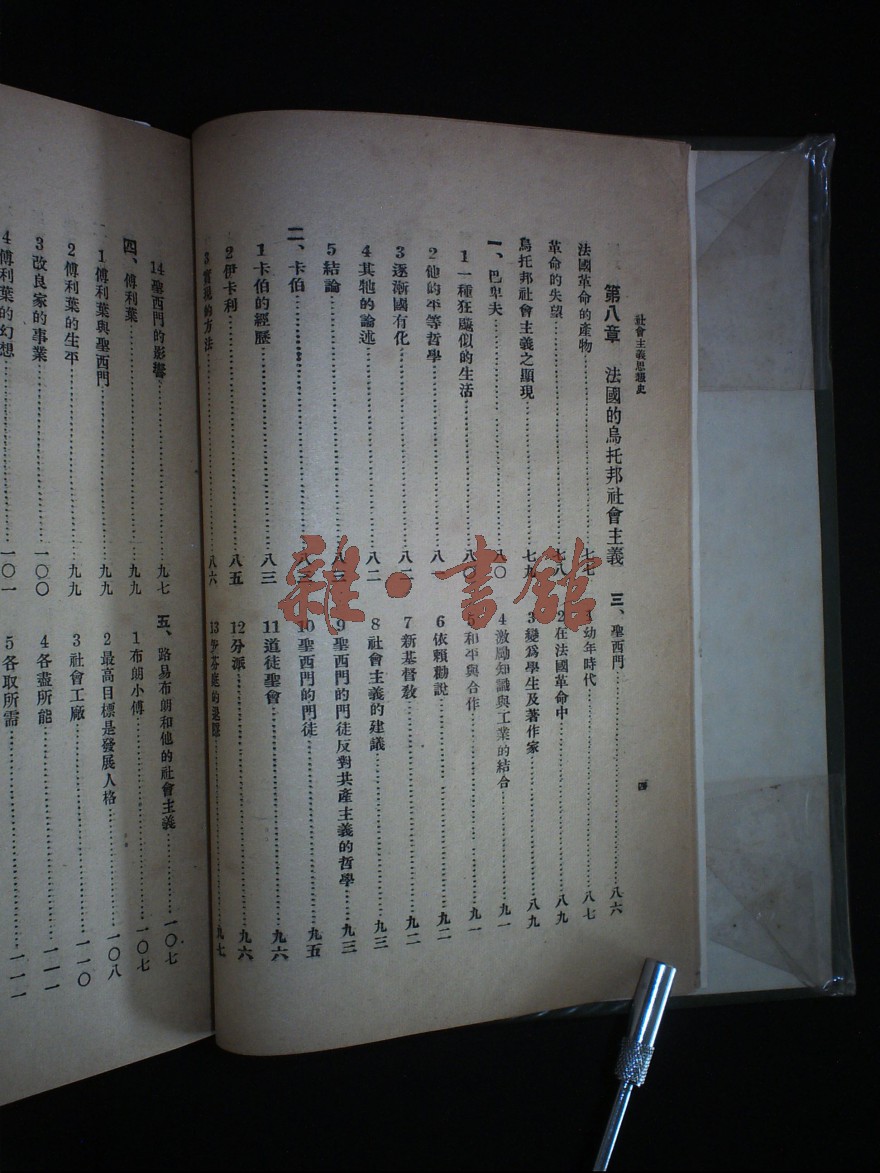 社會主義思想史
第八章　法國的烏托邦社會主義
法國革命的產物……七七
革命的失望……七八
烏托邦社會主義之顯現……七九
一、巴臯夫……八〇
1 一種狂飈似的生活……八〇
2 他的平等哲學……八一
3 逐漸國有化……八二
4 其牠的論述……八二
5 結論……八三
二、卡伯……八三
1 卡伯的經歷……八三
2 伊卡利……八五
3 實現的方法……八六
三、聖西門……八六
1 幼年時代……八七
2 在法國革命中……八九
3 變為學生及著作家……八九
4 激勵知識與工業的結合……九一
5 和平與合作……九一
6 依賴勸說……九二
7 新基督教……九二
8 社會主義的建議……九三
9 聖西門的門徒反對共產主義的哲學……九三
10 聖西門的門徒……九五
11 道徒聖會……九六
12 分派……九六
13 的……九七
四
14 聖西門的影響……九七
四、傅利葉……九九
1 傅利葉與聖西門……九九
2 傅利葉的生平……九九
3 改良家的事業……一〇〇
4 傅利葉的幻想……一〇一
五、路易布朗和他的社會主義……一〇七
1 布朗小傳……一〇七
2 最高目標是發展人格……一〇八
3 社會工廠……一一〇
4 各盡所能……一一一
5 各取所需……一一一
雜·書館